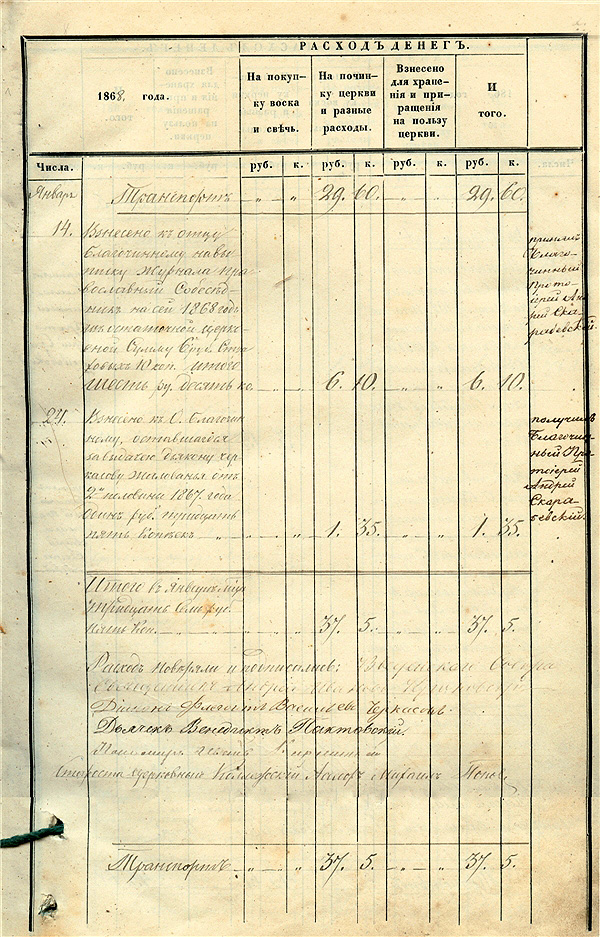 РАСХОДЪ ДЕНЕГЪ.
1868. года.
На покуп-
ку воска
и свѣчь.
На почин-
ку церкви
и разные
расходы.
Взнесено
для хране-
нія и при-
ращенія
на пользу
церкви.
И
того.
Числа. руб. к. руб. к. руб. к. руб. к.
Январь Транспортъ „ „ 29. 60. „ „ 29. 60.
14. Взнесено къ отцу
благочинному на вы
писку Журнала Пра
вославный Собесѣд
никъ на сей 1868 годъ
остаточной церко
вной Сумму
10 коп. итого
шесть ру. десять ко. „ „ 6. 10. „ „ 6. 10.
принялъ
Благо-
чинный
Прото-
іерей Анд
рей Ска-
радевскій.
24. Взнесено къ О. благочин
ному, оставшагося
за выдачею дьякону Чер
касову Жалованья отъ
2й половины 1867. года
один руб. тридцать
пять Копѣекъ „ „ „ 1. 35. „ „ 1. 35.
получилъ
Благочин
ный Про
тоіерей
Андрей
Скара
девскій.
Итого въ Январѣ Мцѣ
тридцать семь руб.
пять Коп. „ „ 37. 5. „ „ 37. 5.
Расходъ повѣряли и подписались:
Священникъ Андрей Ивановъ
Діаконъ Васильевъ Черкасовъ.
Дьячекъ Венедиктъ Пактовскій.
Пономарь
Староста церковный Михаилъ Поповъ
Транспортъ „ „ 37. 5. „ „ 37. 5.